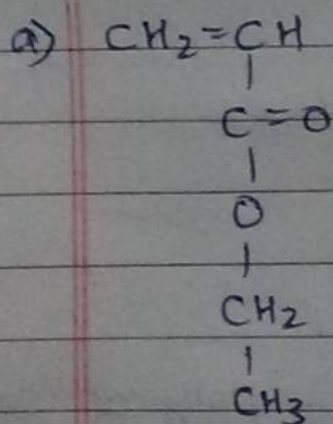 a) CH2=CH
|
C=O
|
O
|
CH2
|
CH3